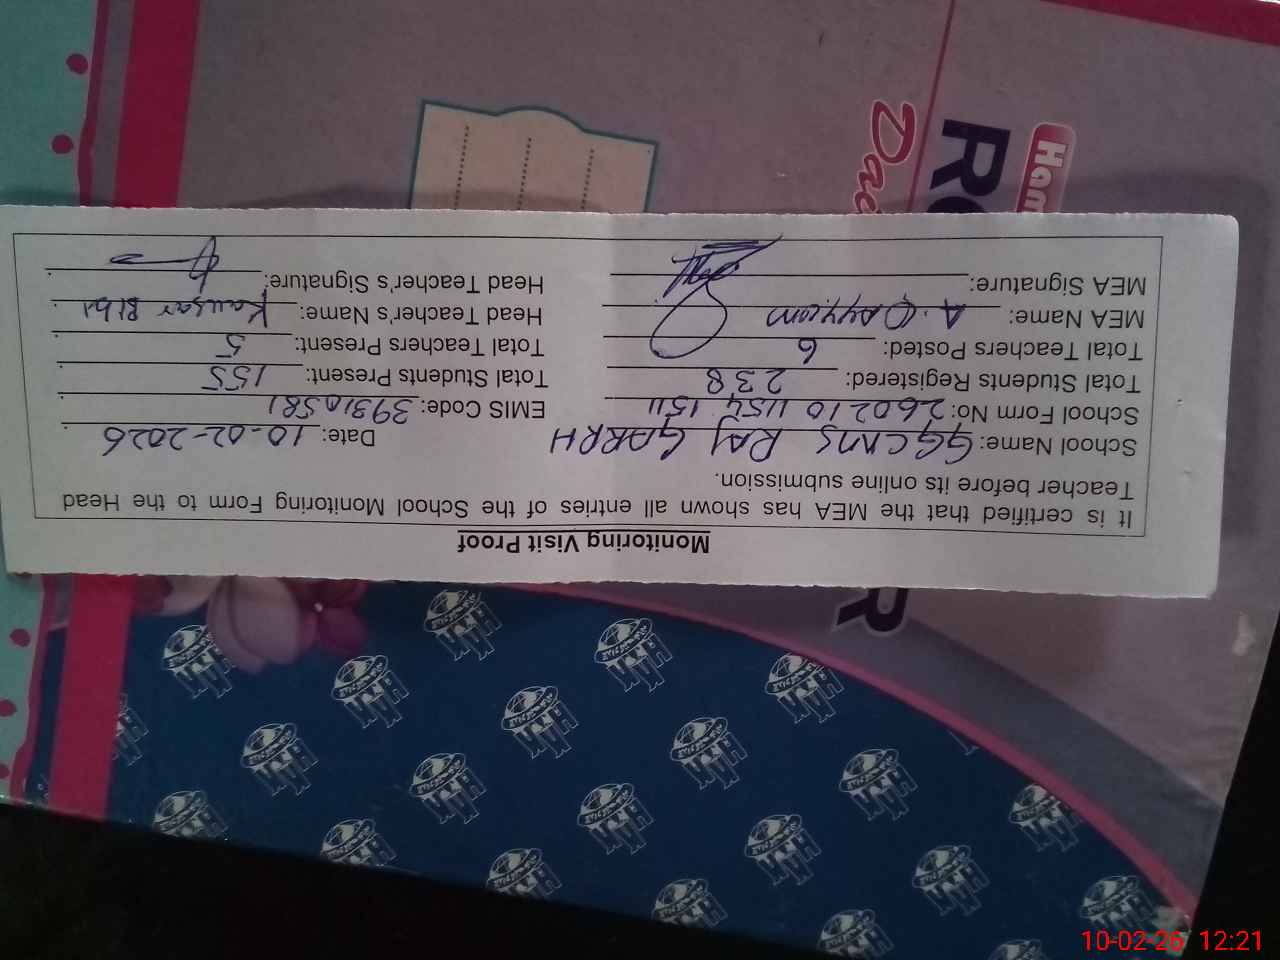 Monitoring Visit Proof
It is certified that the MEA has shown all entries of the School Monitoring Form to the Head
Teacher before its online submission.
School Name: GGCMS RAJ GARRH Date: 10-02-2026
School Form No: 260210 1154 1511 EMIS Code: 39310581
Total Students Registered: 238 Total Students Present: 155
Total Teachers Posted: 6 Total Teachers Present: 5
MEA Name: A. Qayyum Head Teacher's Name: Kausar Bibi
MEA Signature: Head Teacher's Signature:
Ham
Dai
R
10-02-26 12:21